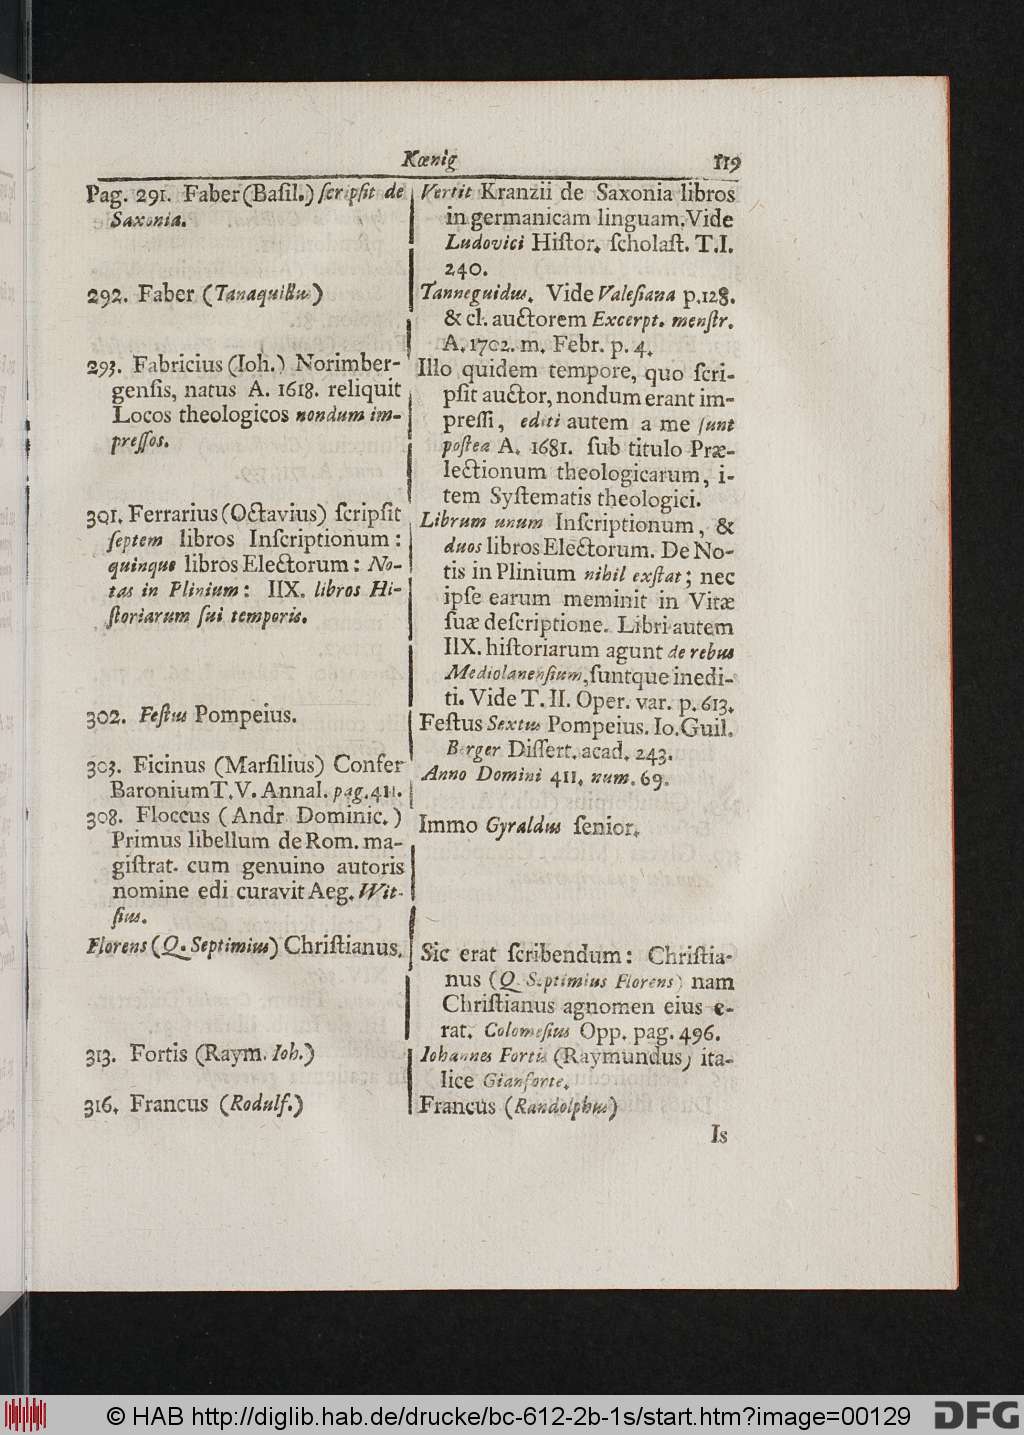 Kœnig 119
Pag. 291. Faber (Baſil.) ſcripſit de
Saxonia.
292. Faber (Tanaquillus)
293. Fabricius (Ioh.) Norimber-
genſis, natus A. 1618. reliquit
Locos theologicos nondum im-
preſſos.
301. Ferrarius (Octavius) ſcripſit
ſeptem libros Inſcriptionum:
quinque libros Electorum: No-
tas in Plinium: IIX. libros Hi-
ſtoriarum ſui temporis.
302. Feſtus Pompeius.
303. Ficinus (Marſilius) Confer
Baronium T. V. Annal. pag. 411.
308. Floccus (Andr Dominic.)
Primus libellum de Rom. ma-
giſtrat. cum genuino autoris
nomine edi curavit Aeg. Wit-
ſius.
Florens (Q. Septimius) Chriſtianus.
313. Fortis (Raym. Ioh.)
316. Francus (Rodulf.)
Vertit Kranzii de Saxonia libros
in germanicam linguam. Vide
Ludovici Hiſtor. ſcholaſt. T. I.
240.
Tanneguidus. Vide Valeſiana p. 128.
& cl. auctorem Excerpt. menſtr.
A. 1702. m. Febr. p. 4.
Illo quidem tempore, quo ſcri-
pſit auctor, nondum erant im-
preſſi, editi autem a me ſunt
poſtea A. 1681. ſub titulo Præ-
lectionum theologicarum, i-
tem Syſtematis theologici.
Librum unum Inſcriptionum, &
duos libros Electorum. De No-
tis in Plinium nihil exſtat; nec
ipſe earum meminit in Vitæ
ſuæ deſcriptione. Libri autem
IIX. hiſtoriarum agunt de rebus
Mediolanenſium, ſuntque inedi-
ti. Vide T. II. Oper. var. p. 613.
Feſtus Sextus Pompeius. Io. Guil.
Berger Diſſert. acad. 243.
Anno Domini 411. num. 69.
Immo Gyraldus ſenior.
Sic erat ſcribendum: Chriſtia-
nus (Q. Septimius Florens) nam
Chriſtianus agnomen eius e-
rat. Colomeſius Opp. pag. 496.
Iohannes Fortis (Raymundus) ita-
lice Gianforte.
Francus (Randolphus)
Is
© HAB http://diglib.hab.de/drucke/bc-612-2b-1s/start.htm?image=00129
DFG